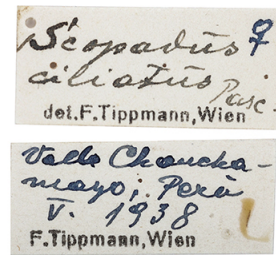 Scopadus ♀
ciliatus Pasc.
det. F. Tippmann, Wien
Valle Chancha-
mayo; Perú
V. 1938
F. Tippmann, Wien